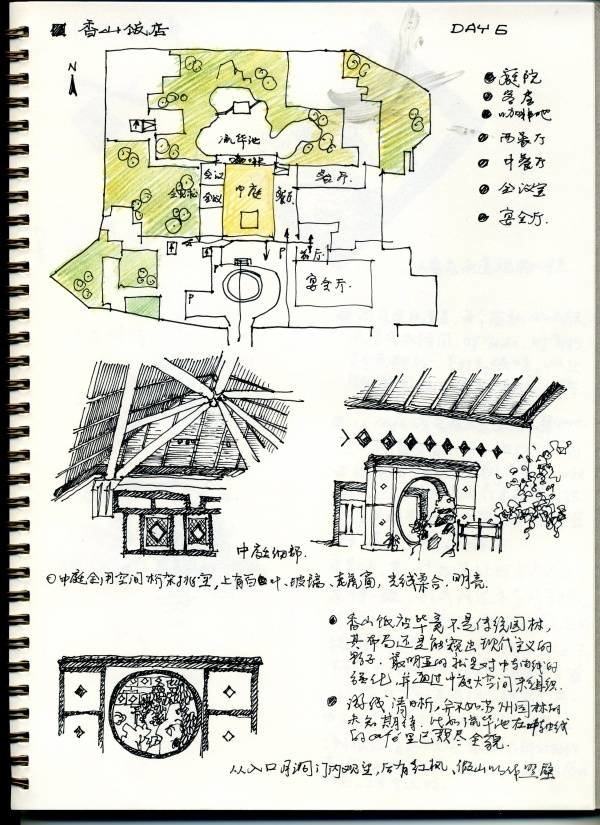 香山饭店
DAY 6
N
庭院
客房
咖啡吧
西餐厅
中餐厅
会议室
宴会厅.
流华池
会议
会议
中庭
餐厅
餐厅
宴会厅.
P
P
P
中庭细部.
中庭全用空间桁架挑空,上有百叶、玻璃、老虎窗,光线柔合.明亮.
香山饭店毕竟不是传统园林,
其布局还是能窥出现代主义的
影子.最明显的就是对中轴线的
强化,并通过中庭大空间来组织.
游线清晰,并不如苏州园林的
未知期待.比如流华池在中轴线
的cafe里已现尽全貌.
从入口月洞门内观望,后有红枫、假山以作照壁